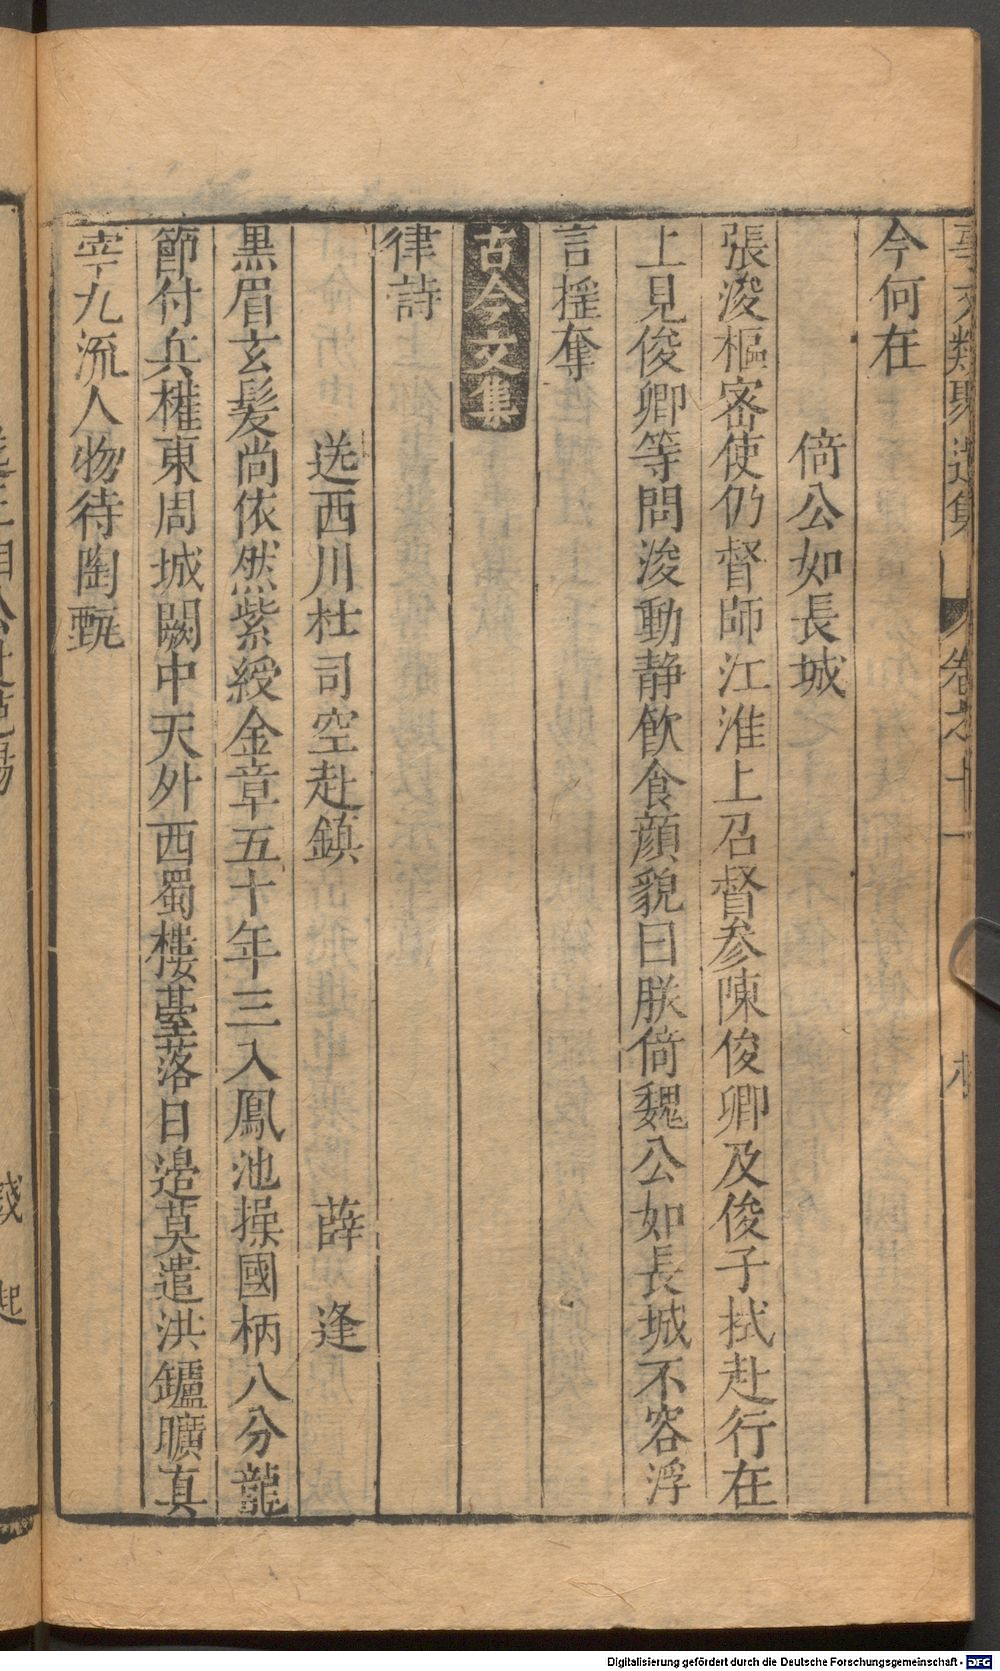 事文類聚選集 卷之十一
今何在
倚公如長城
張浚樞密使仍督師江淮上召督參陳俊卿及俊子拭赴行在
上見俊卿等問浚動静飲食顔貌曰朕倚魏公如長城不容浮
言揺奪
古今文集
律詩
送西川杜司空赴鎮 薛逢
黒眉玄髮尚依然紫綬金章五十年三入鳳池操國柄八分龍
節付兵權東周城闕中天外西蜀樓臺落日邉莫遣洪鑪曠真
宰九流人物待陶甄
起
Digitalisierung gefördert durch die Deutsche Forschungsgemeinschaft - DFG